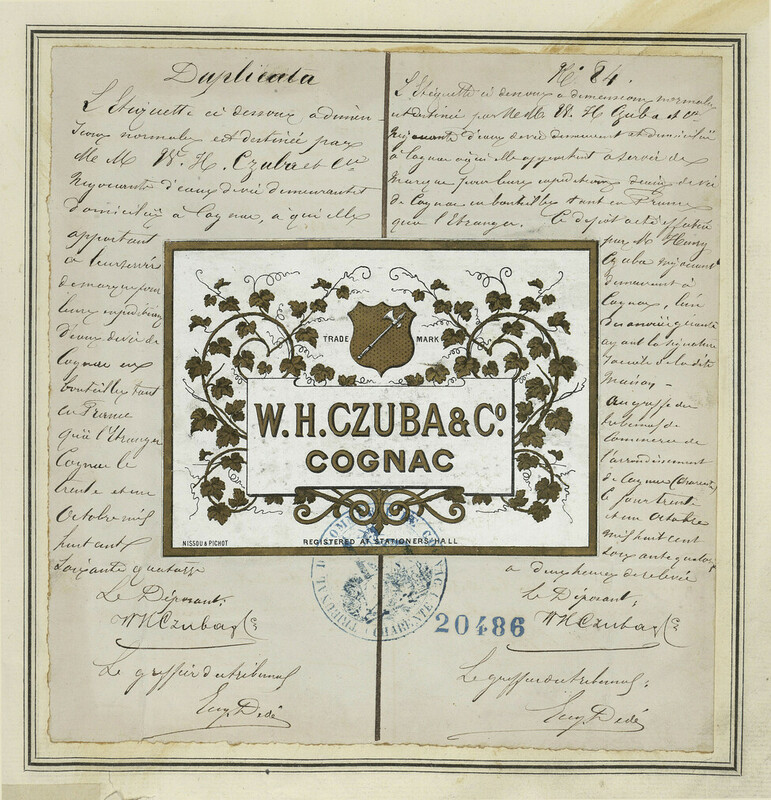 Duplicata
L'Etiquette ci dessous a dimen-
sions normales est destinée par
M M W. H. Czuba et Cie
Négociants d'eaux de vie demeurant et
domiciliés à Cognac, à qui elle
appartient
à leur servir
de marque pour
leurs expéditions
d'eaux de vie de
Cognac en
bouteilles tant
en France
qu'à l'Etranger
Cognac le
trente et un
Octobre mil
huit cent
soixante quatorze
Le Déposant,
WHCzuba & Co
Le greffier du tribunal
Eug. Dedé
No 84.
L'Etiquette ci dessous a dimensions normales
est destinée par M M W. H. Czuba et Cie
Négociants d'eaux de vie demeurant et domiciliés
à Cognac à qui elle appartient à servir de
marque pour leurs expéditions d'eaux de vie
de Cognac en bouteilles tant en France
qu'à l'Etranger. Ce dépôt a été effectué
par M Henry
Czuba négociant
demeurant à
Cognac, l'un
ayant la signature
sociale de la dite
Maison -
au greffe du
tribunal de
Commerce de
l'arrondissement
de Cognac (Charente)
le jour trente
et un Octobre
mil huit cent
soixante quatorze
à deux heures de relevée
Le Déposant,
WHCzuba & Co
Le greffier du tribunal,
Eug. Dedé
TRADE MARK
W.H.CZUBA & Co.
COGNAC
NISSOU & PICHOT
REGISTERED AT STATIONERS HALL
TRIBUNAL DE COMMERCE DE COGNAC CHARENTE
20486